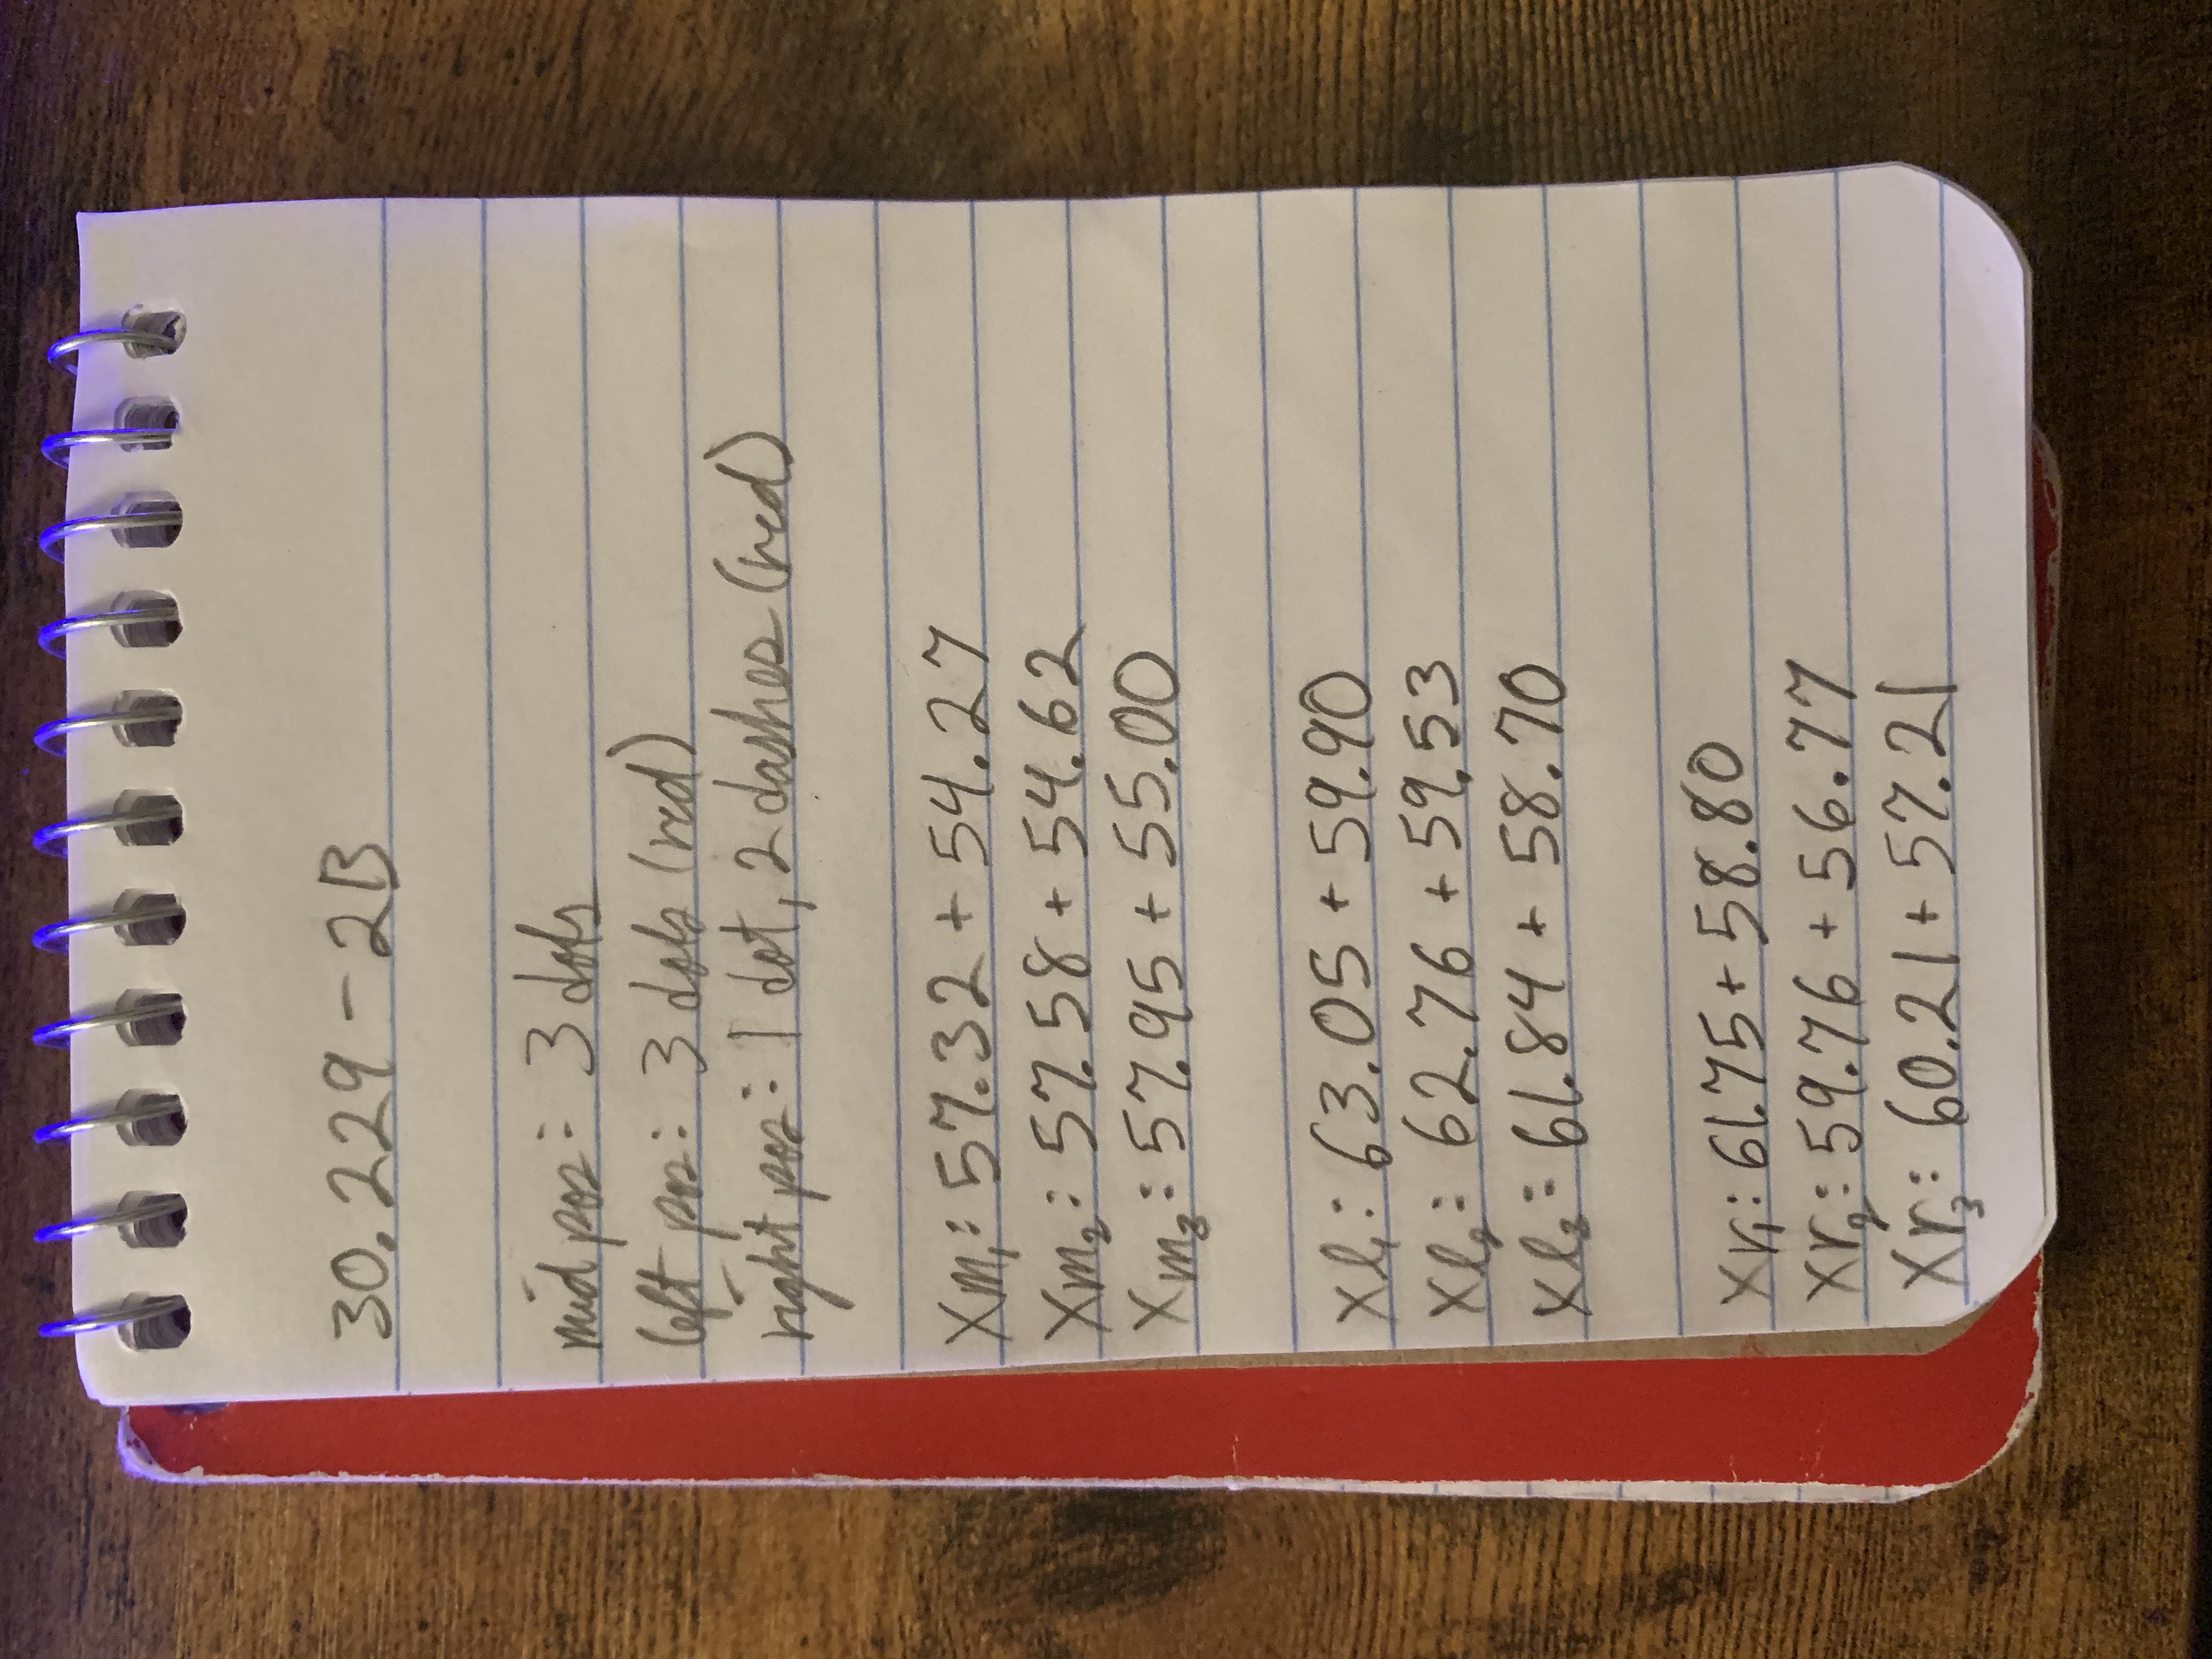 30.229 - 2B
mid pos: 3 dots
left pos: 3 dots (red)
right pos: 1 dot, 2 dashes (red)
Xm₁: 57.32 + 54.27
Xm₂: 57.58 + 54.62
Xm₃: 57.95 + 55.00
Xl₁: 63.05 + 59.90
Xl₂: 62.76 + 59.53
Xl₃: 61.84 + 58.70
Xr₁: 61.75 + 58.80
Xr₂: 59.76 + 56.77
Xr₃: 60.21 + 57.21